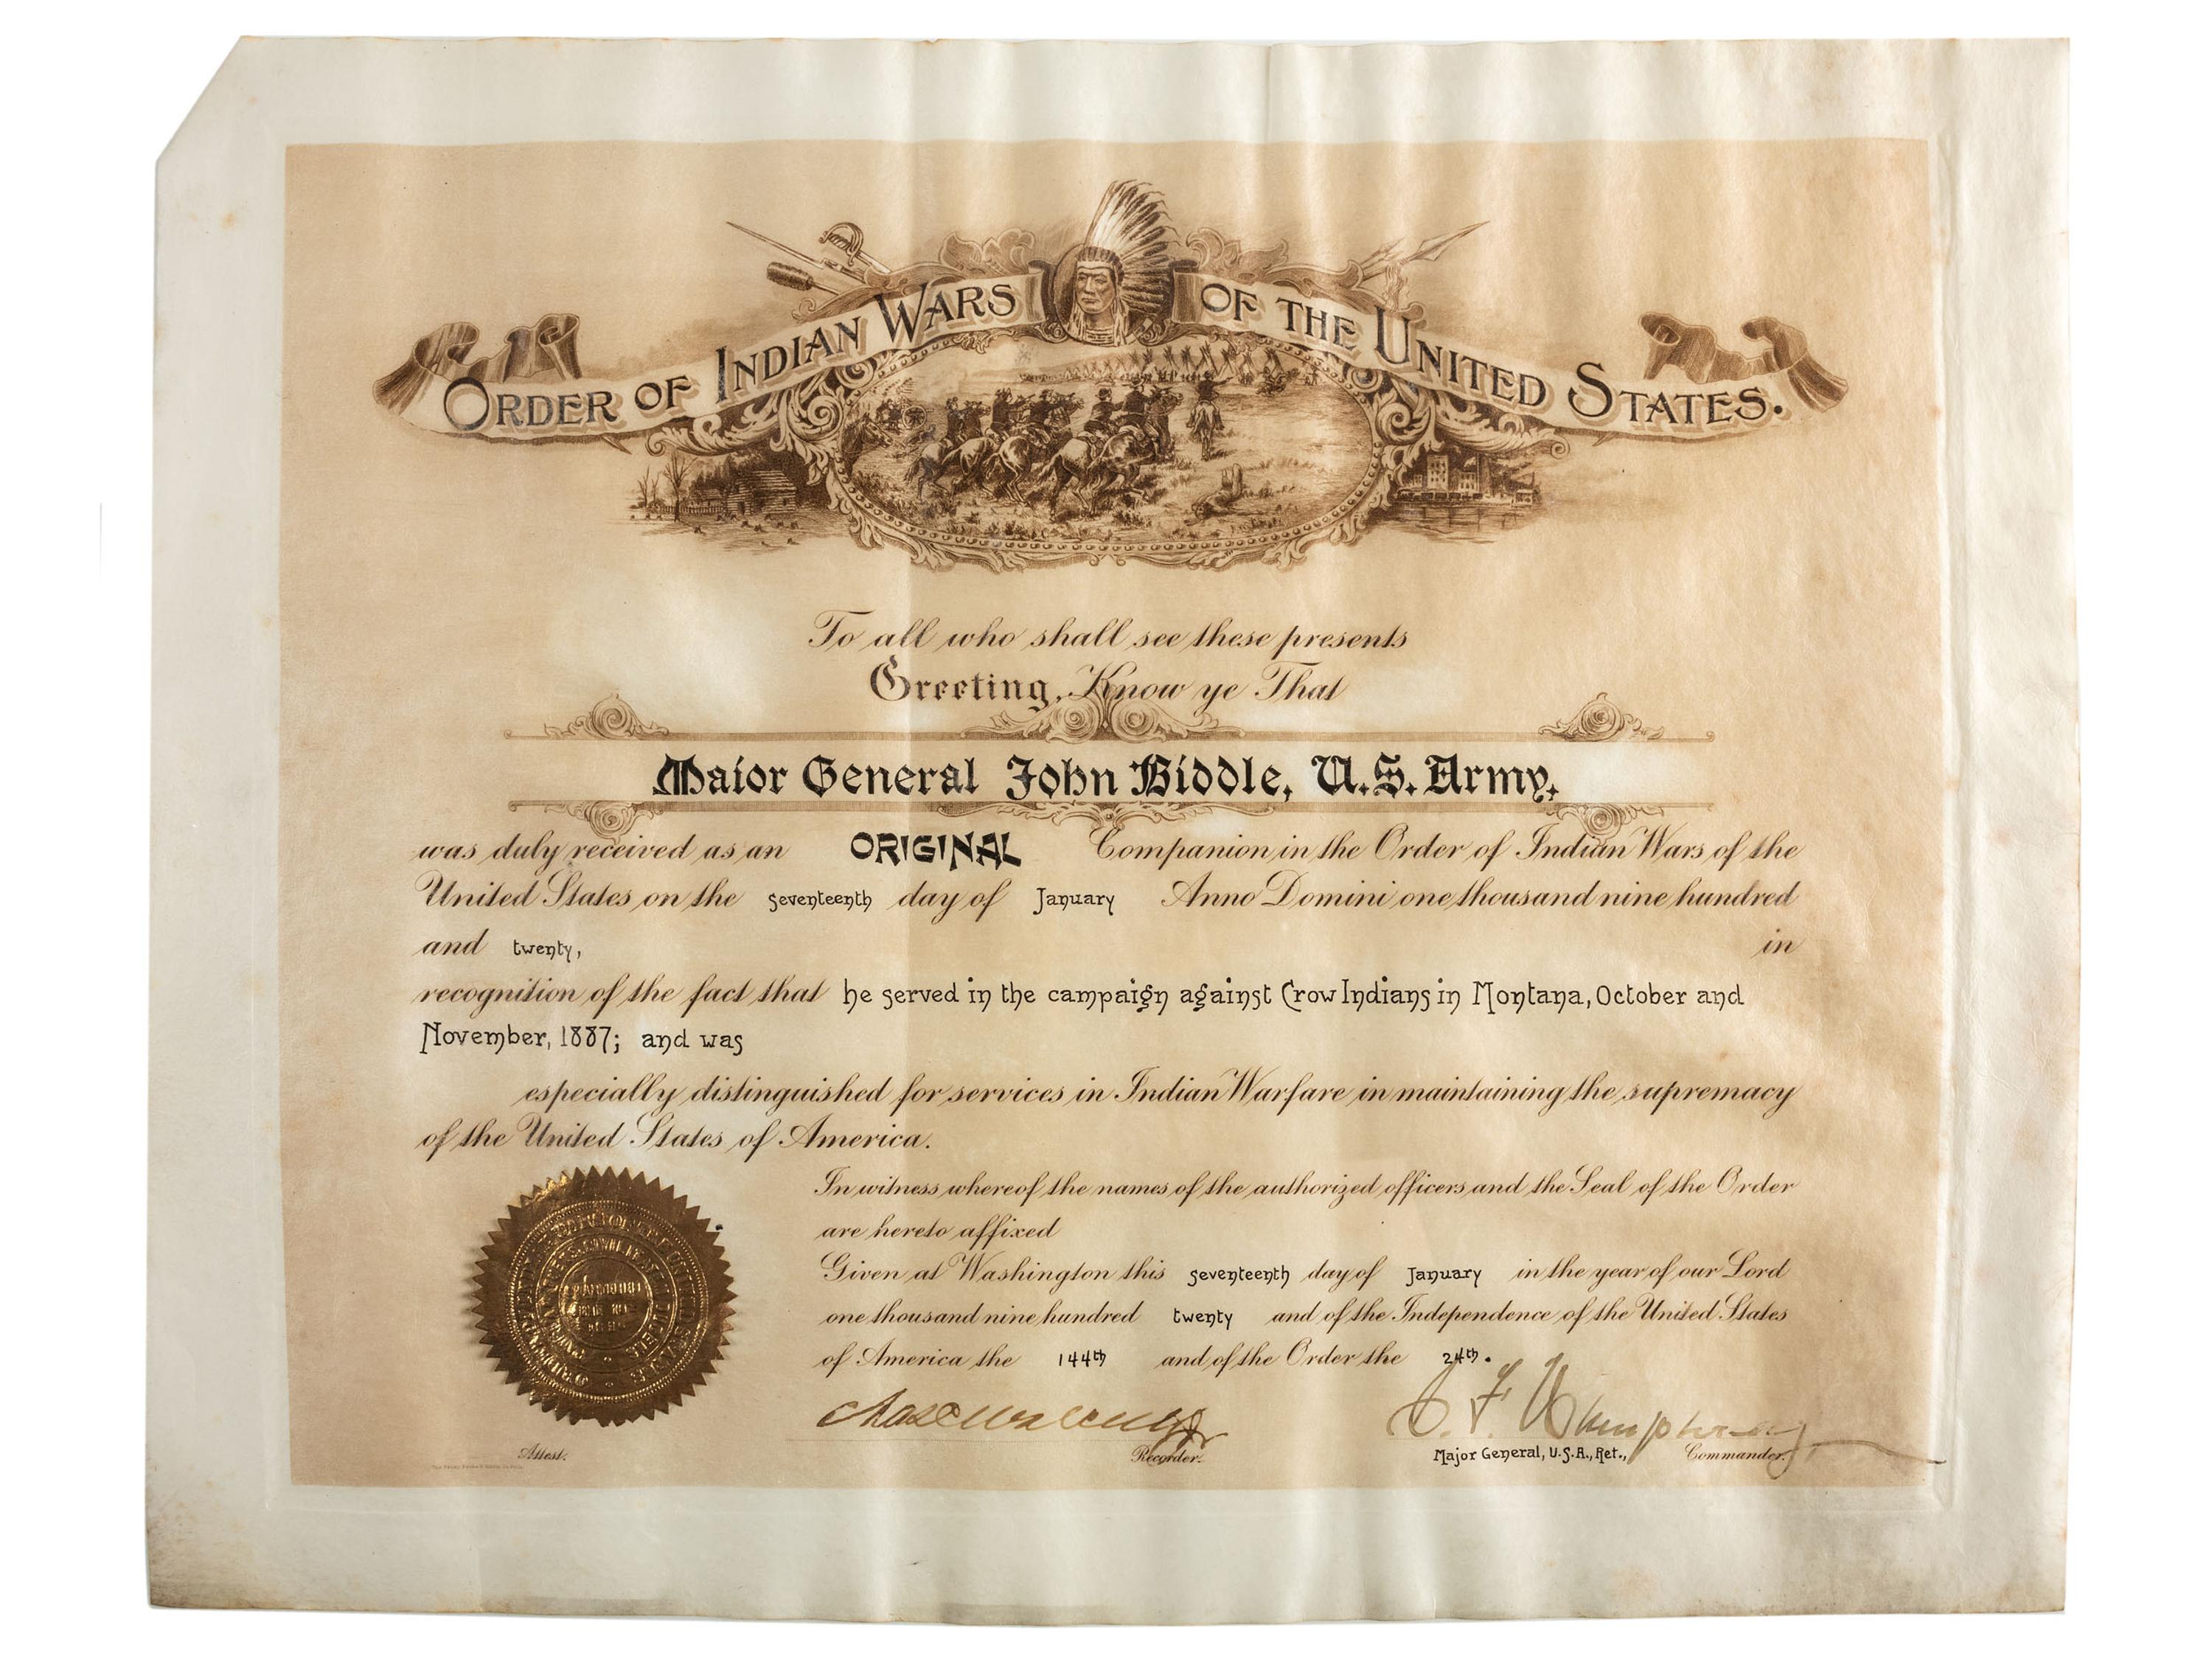 ORDER OF INDIAN WARS OF THE UNITED STATES.
To all who shall see these presents
Greeting, Know ye That
Maior General John Biddle, U.S. Army,
was duly received as an ORIGINAL Companion in the Order of Indian Wars of the
United States on the seventeenth day of January Anno Domini one thousand nine hundred
and twenty, in
recognition of the fact that he served in the campaign against Crow Indians in Montana, October and
November, 1887; and was
especially distinguished for services in Indian Warfare in maintaining the supremacy
of the United States of America.
In witness whereof the names of the authorized officers and the Seal of the Order
are hereto affixed
Given at Washington this seventeenth day of January in the year of our Lord
one thousand nine hundred twenty and of the Independence of the United States
of America the 144th and of the Order the 24th.
C. F. Humphrey
Attest. Recorder. Major General, U.S.A., Ret., Commander.